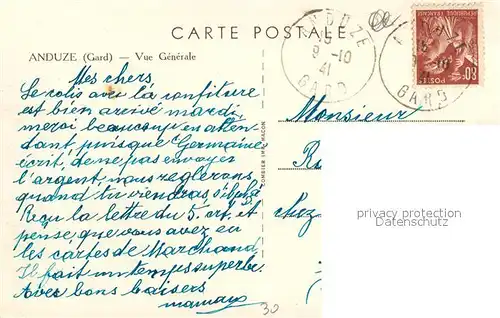 CARTE POSTALE
ANDUZE (Gard) — Vue Générale
Mes chers,
Le colis avec la confiture
est bien arrivé mardi,
merci beaucoup en atten
dant puisque Germaine
écrit de ne pas envoyer
l'argent nous reglerons
quand tu viendras s'il plaît
Reçu la lettre du 5. et
pense que vous avez eu
les cartes de Marchand
Il fait un temps superbe.
Avec bons baisers
maman
30
COMBIER IMP. MACON
ANDUZE
9-10
41
GARD
GARD
POSTES
Monsieur
chez
privacy protection
Datenschutz